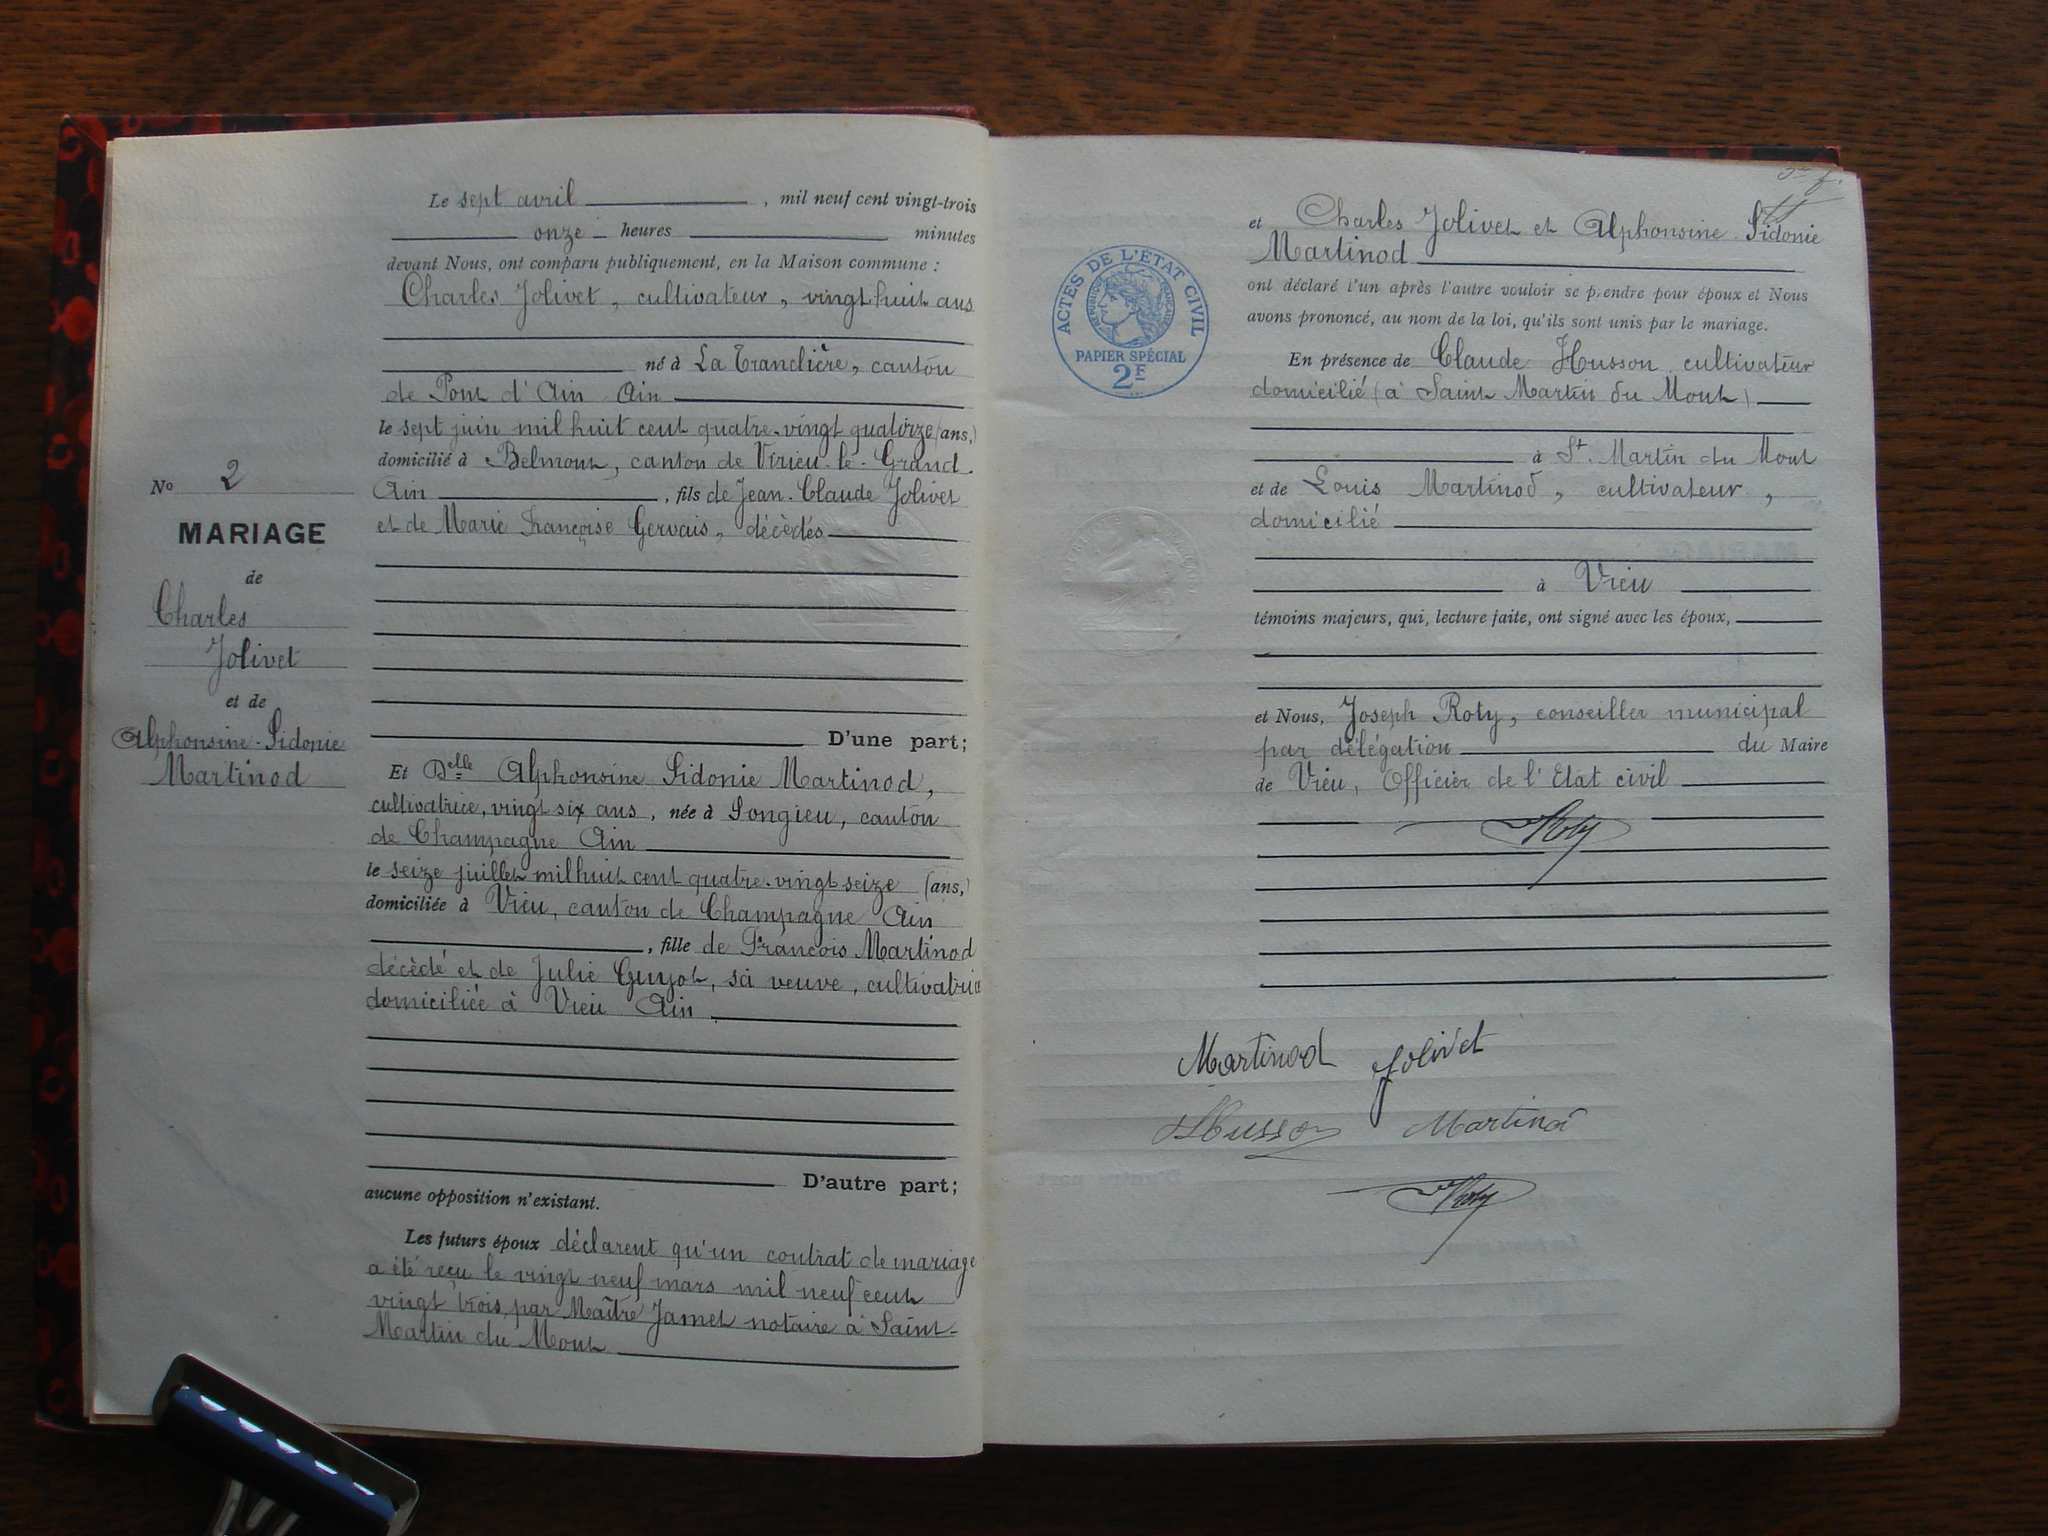 Le sept avril, mil neuf cent vingt-trois
onze heures minutes
devant Nous, ont comparu publiquement, en la Maison commune :
Charles Jolivet, cultivateur, vingt huit ans
né à La Tranclière, canton
de Pont d'Ain Ain
le sept juin mil huit cent quatre-vingt quatorze (ans,)
domicilié à Belmont, canton de Virieu-le-Grand
Ain, fils de Jean-Claude Jolivet
et de Marie Françoise Gervais, décèdés
No 2
MARIAGE
de
Charles
Jolivet
et de
Alphonsine-Sidonie
Martinod
D'une part;
Et Delle Alphonsine Sidonie Martinod,
cultivatrice, vingt six ans, née à Songieu, canton
de Champagne Ain
le seize juillet mil huit cent quatre-vingt seize (ans,)
domiciliée à Vieu, canton de Champagne Ain
, fille de François Martinod
décèdé et de Julie Guyot, sa veuve, cultivatrice
domiciliée à Vieu Ain
D'autre part;
aucune opposition n'existant.
Les futurs époux déclarent qu'un contrat de mariage
a été reçu le vingt neuf mars mil neuf cent
vingt trois par Maître Jamet notaire à Saint-
Martin du Mont
et Charles Jolivet et Alphonsine Sidonie
Martinod
ACTES DE L'ÉTAT CIVIL
RÉPUBLIQUE FRANÇAISE
PAPIER SPÉCIAL
2F
ont déclaré l'un après l'autre vouloir se prendre pour époux et Nous
avons prononcé, au nom de la loi, qu'ils sont unis par le mariage.
En présence de Claude Husson cultivateur
domicilié (à Saint Martin du Mont)
à St. Martin du Mont
et de Louis Martinod, cultivateur,
domicilié
à Vieu
témoins majeurs, qui, lecture faite, ont signé avec les époux,
et Nous, Joseph Roty, conseiller municipal
par délégation du Maire
de Vieu, Officier de l'Etat civil
Roty
Martinod Jolivet
Husson Martinod
Roty